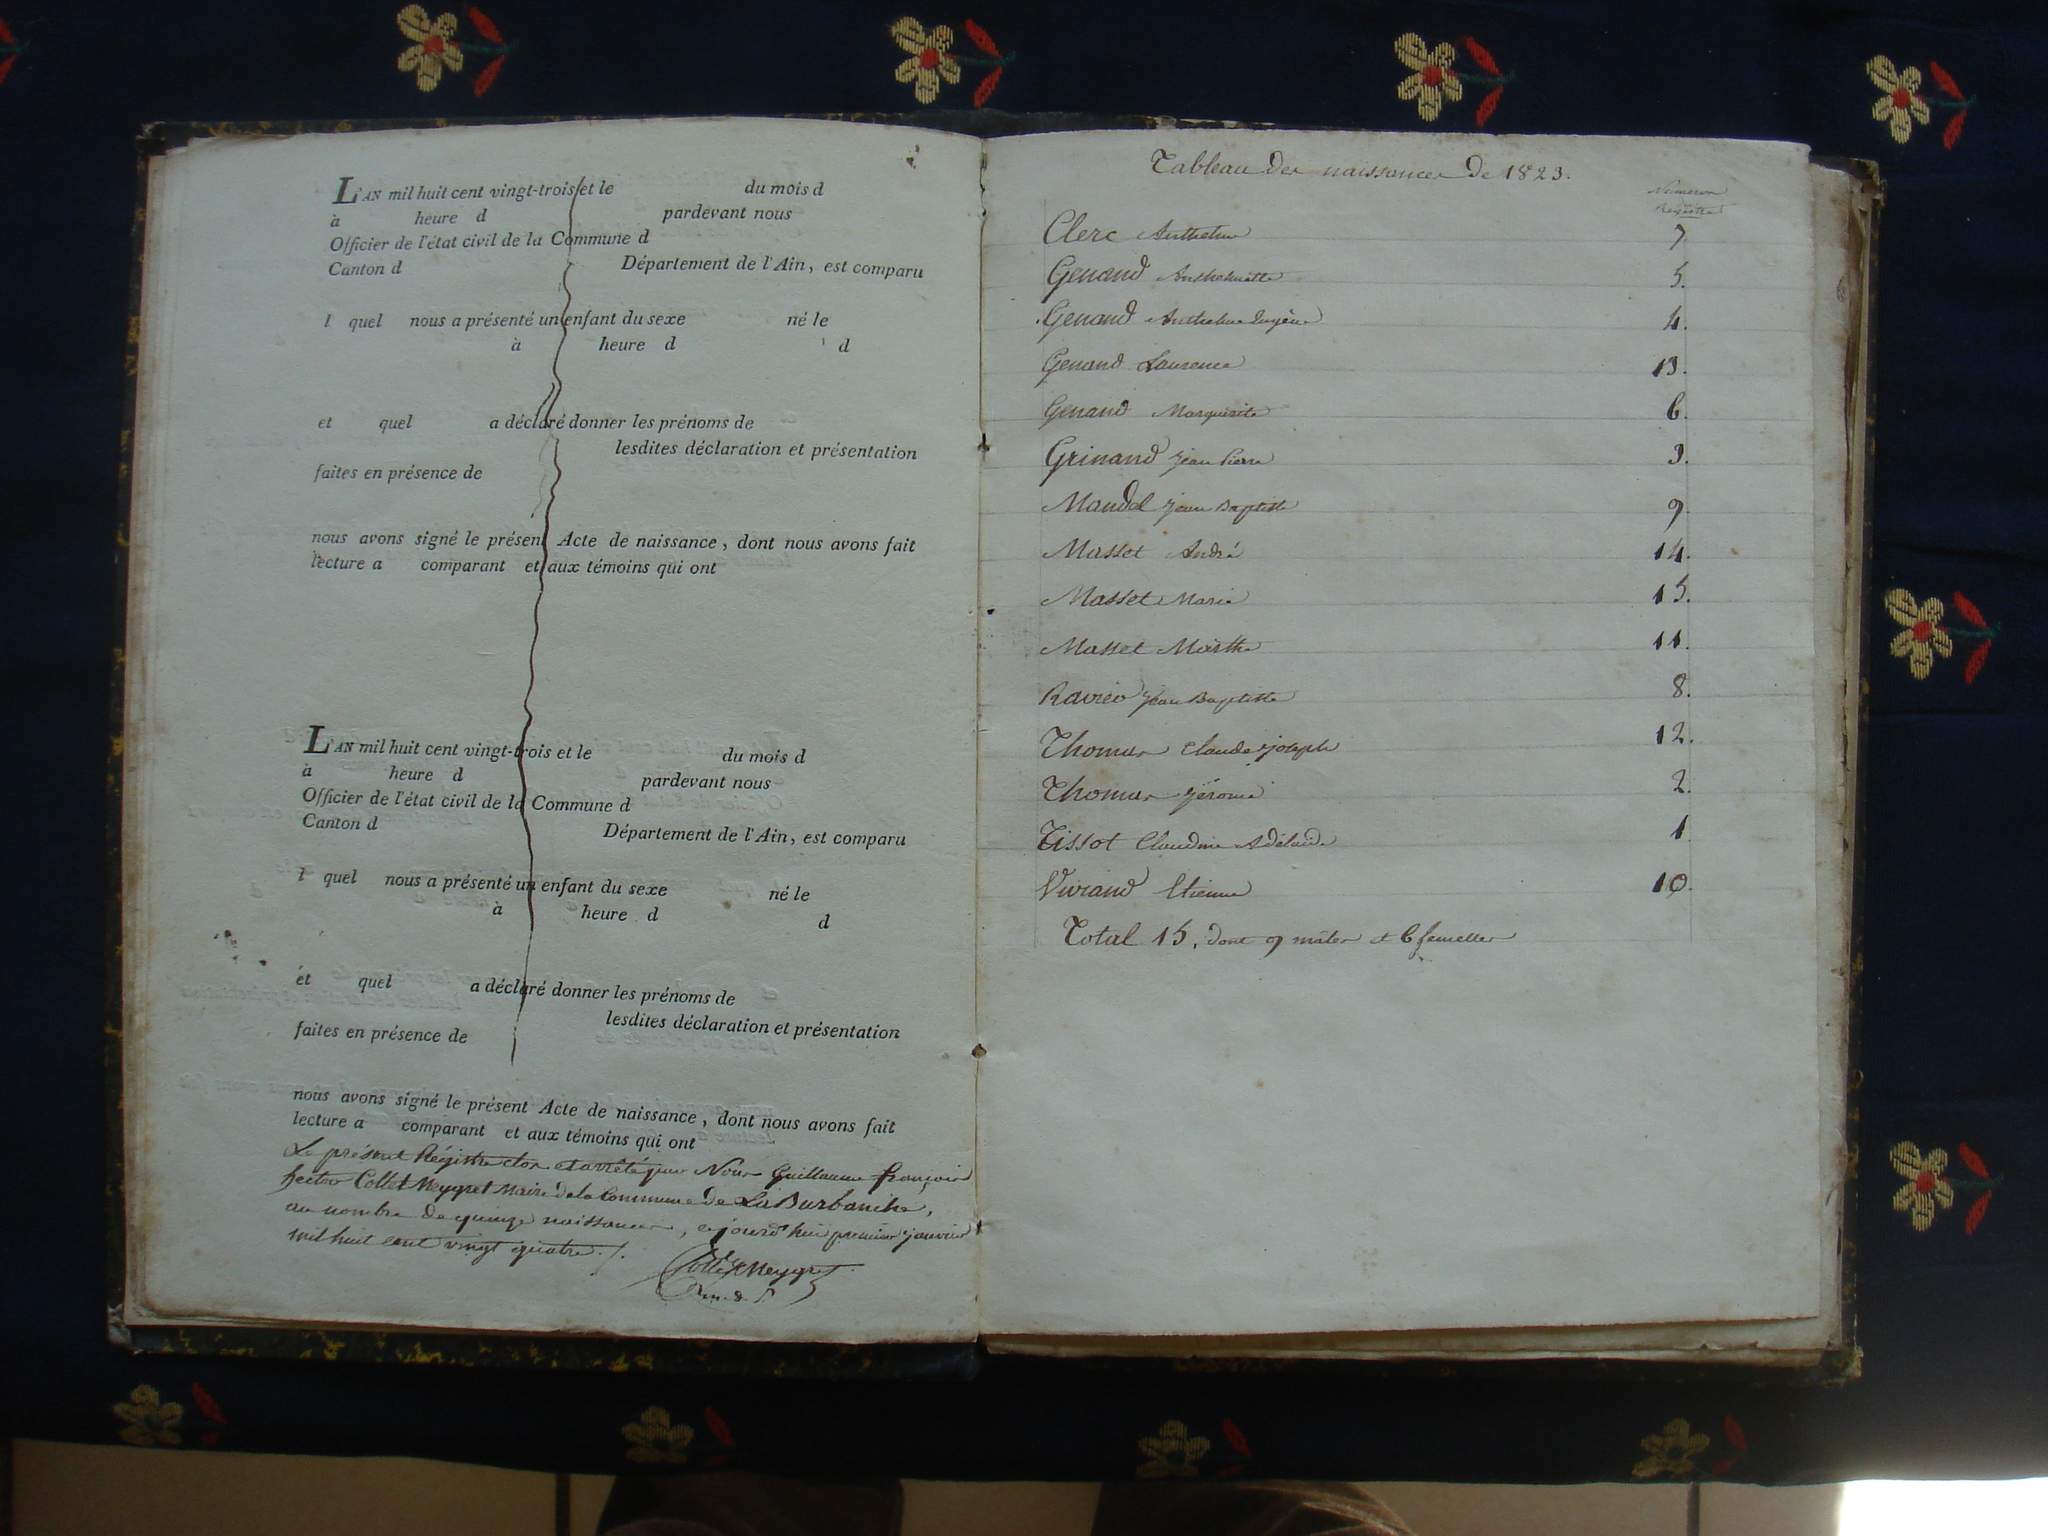 L'AN mil huit cent vingt-trois et le du mois d
à heure d pardevant nous
Officier de l'état civil de la Commune d
Canton d Département de l'Ain, est comparu
l quel nous a présenté un enfant du sexe né le
à heure d d
et quel a déclaré donner les prénoms de
lesdites déclaration et présentation
faites en présence de
nous avons signé le présent Acte de naissance, dont nous avons fait
lecture a comparant et aux témoins qui ont
L'AN mil huit cent vingt-trois et le du mois d
à heure d pardevant nous
Officier de l'état civil de la Commune d
Canton d Département de l'Ain, est comparu
l quel nous a présenté un enfant du sexe né le
à heure d d
et quel a déclaré donner les prénoms de
lesdites déclaration et présentation
faites en présence de
nous avons signé le présent Acte de naissance, dont nous avons fait
lecture a comparant et aux témoins qui ont
Le présent Régistre clos et arrêté par Nous Guillaume françois
hector Collet Meygret Maire de la Commune de La Burbanche,
au nombre de quinze naissances, cejourd'hui premier janvier
mil huit cent vingt quatre ./.
Collet Meygret
Tableau des naissances de 1823.
Numéros
Régistre
Clerc Anthelme 7
Genand Anthelmette 5.
Genand Anthelme Eugène 4.
Genand Laurence 13.
Genand Marguerite 6.
Grinand Jean Pierre 3.
Mandel Jean Baptiste 9
Masset André 14.
Masset Marie 15.
Masset Marthe 11.
Ravier Jean Baptiste 8.
Thomas Claude Joseph 12.
Thomas Jérome 2.
Tissot Claudine Adélaide 1
Vivrand Etienne 10.
Total 15, dont 9 mâles et 6 femelles